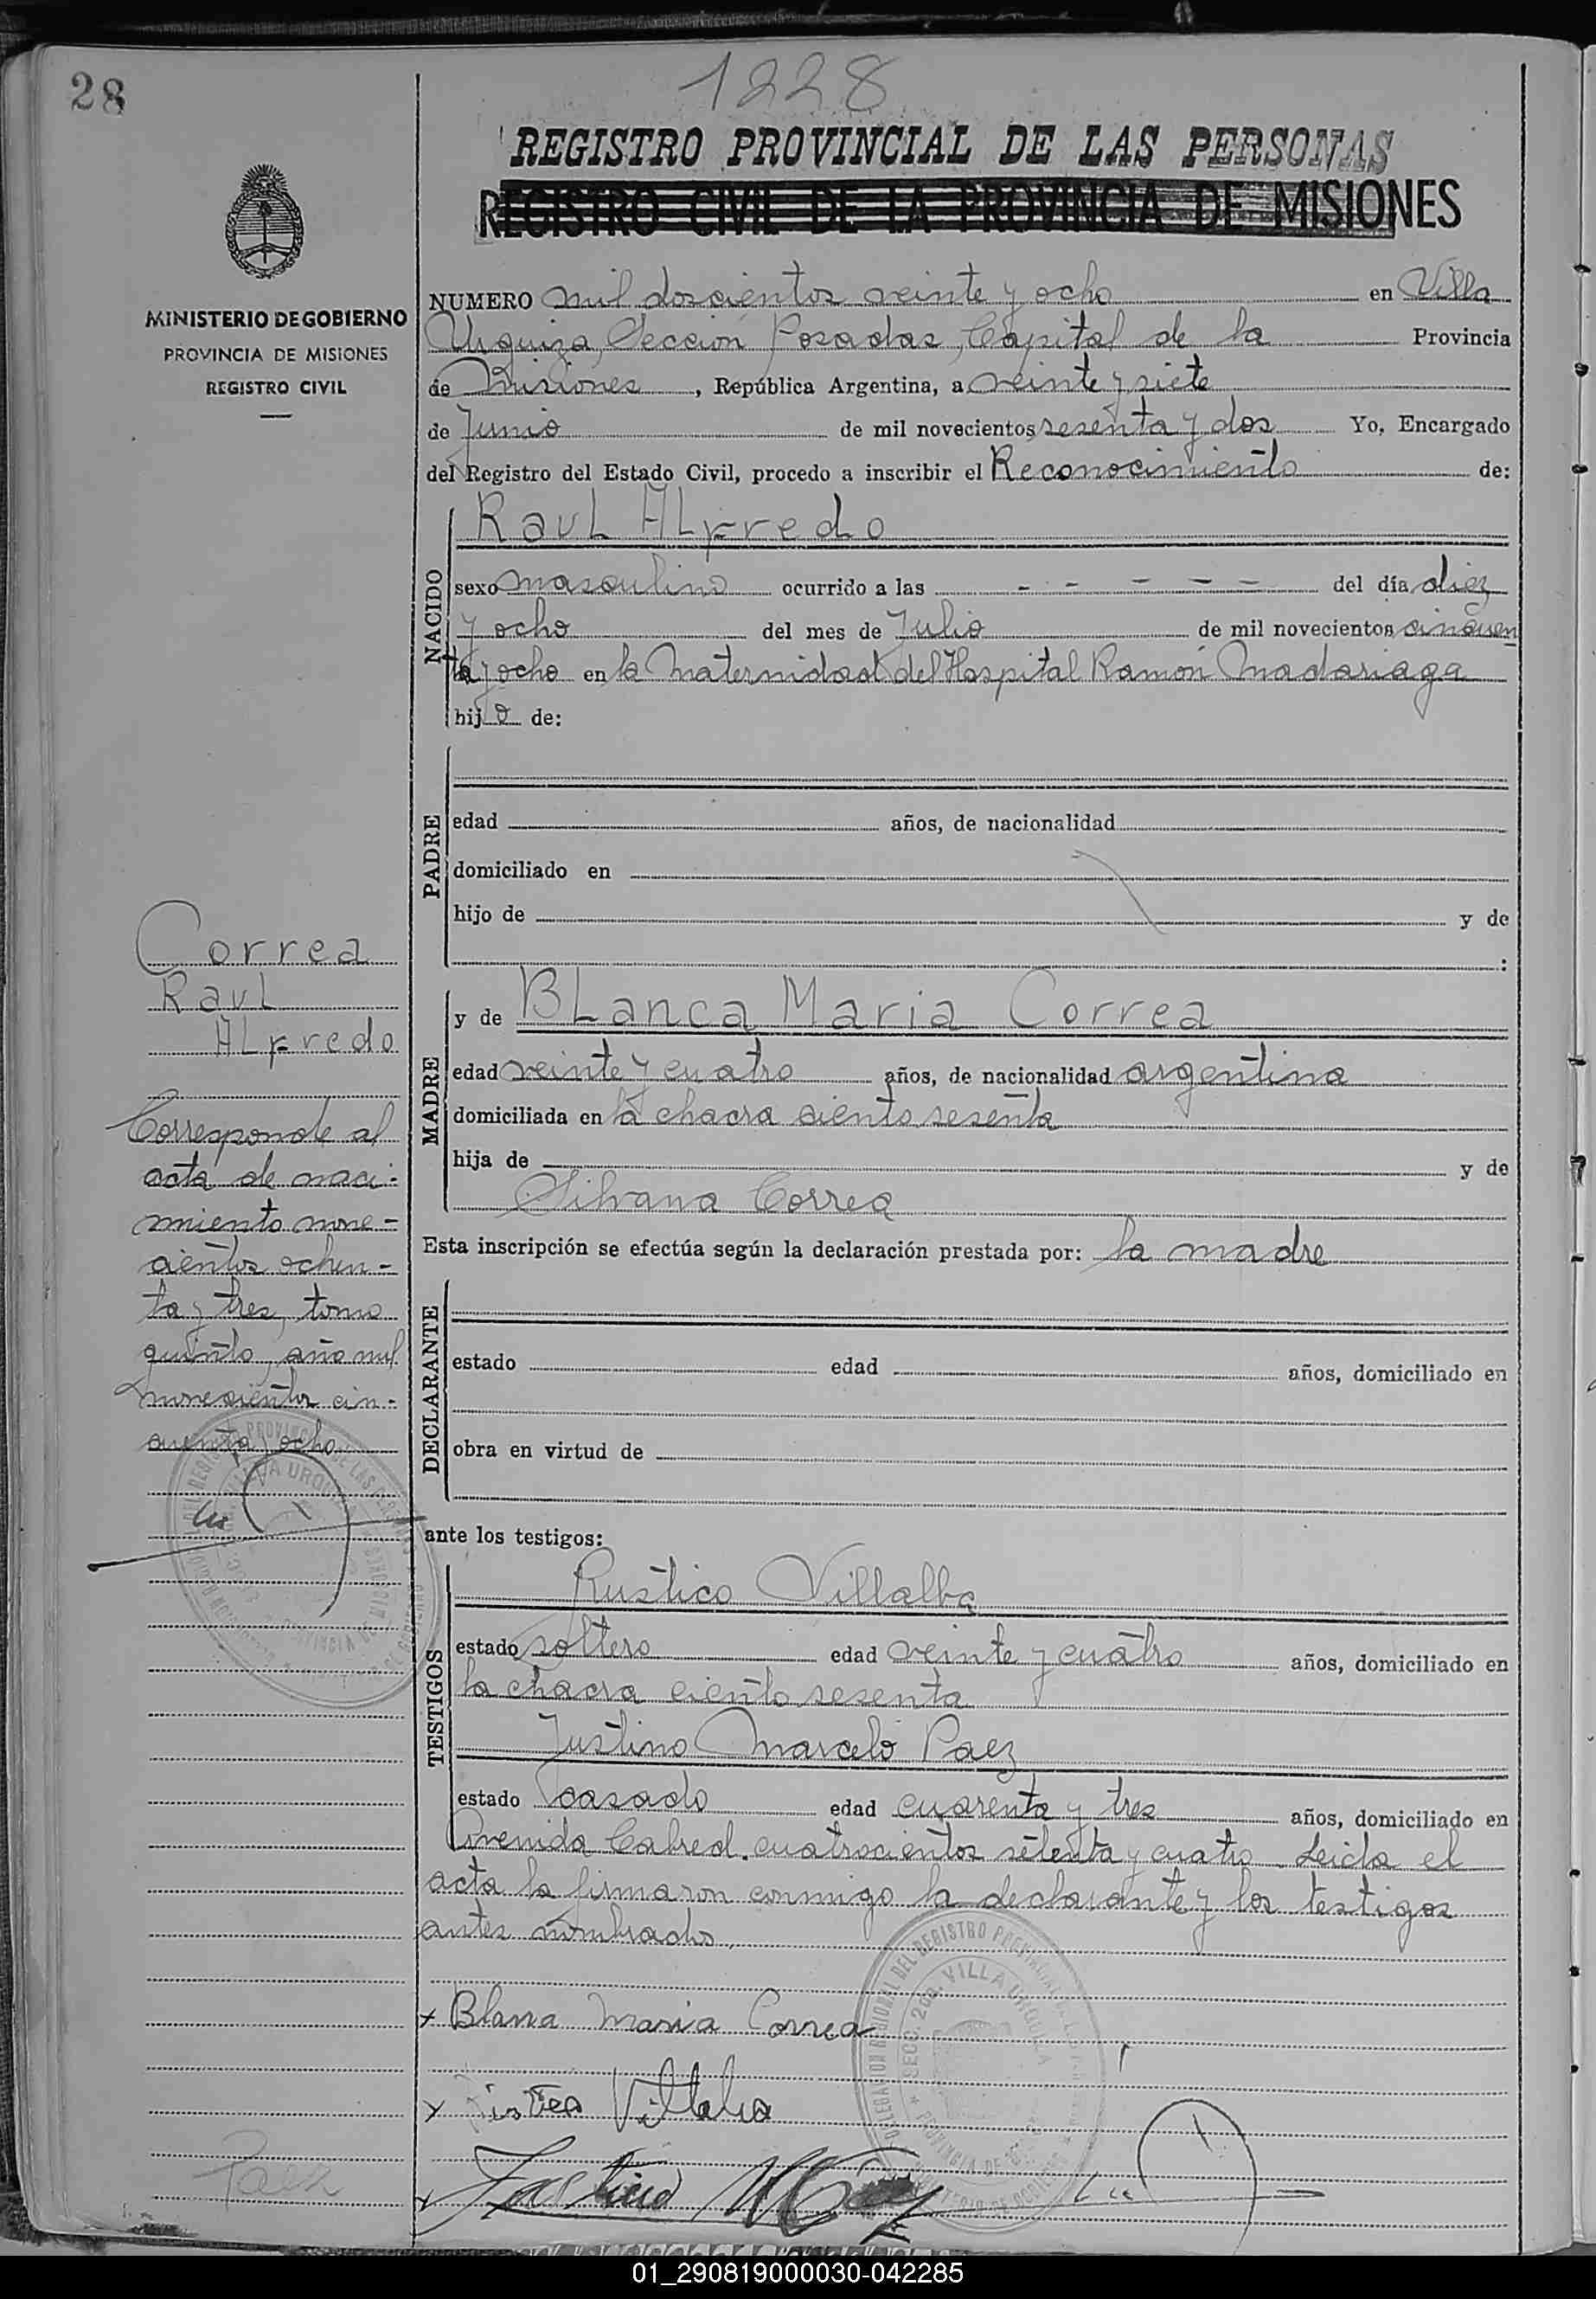 28
1228
REGISTRO PROVINCIAL DE LAS PERSONAS
REGISTRO CIVIL DE LA PROVINCIA DE MISIONES
MINISTERIO DE GOBIERNO
PROVINCIA DE MISIONES
REGISTRO CIVIL
NUMERO mil doscientos veinte y ocho en Villa
Urquiza, Sección Posadas, Capital de la Provincia
de Misiones, República Argentina, a veinte y siete
de Junio de mil novecientos sesenta y dos Yo, Encargado
del Registro del Estado Civil, procedo a inscribir el Reconocimiento de:
NACIDO
Raul Alfredo
sexo masculino ocurrido a las - - - - - del día diez
y ocho del mes de Julio de mil novecientos cincuen
ta y ocho en la Maternidad del Hospital Ramón Madariaga
hijo de:
PADRE
edad años, de nacionalidad
domiciliado en
hijo de y de
:
Correa
Raul
Alfredo
Corresponde al
acta de naci-
miento nove-
cientos ochen-
ta y tres, tomo
quinto, año mil
novecientos cin-
cuenta y ocho
MADRE
y de Blanca Maria Correa
edad veinte y cuatro años, de nacionalidad argentina
domiciliada en la chacra ciento sesenta
hija de y de
Silvana Correa
Esta inscripción se efectúa según la declaración prestada por: la madre
DECLARANTE
estado edad años, domiciliado en
obra en virtud de
ante los testigos:
TESTIGOS
Rustico Villalba
estado soltero edad veinte y cuatro años, domiciliado en
la chacra ciento sesenta
Justino Marcelo Paez
estado casado edad cuarenta y tres años, domiciliado en
Avenida Cabred cuatrocientos setenta y cuatro. Leida el
acta la firmaron conmigo la declarante y los testigos
antes nombrados.
x Blanca Maria Correa
x Villalba
x Justino M Paez
Paez
DELEGACION REGIONAL DEL REGISTRO PROVINCIAL DE LAS PERSONAS
SECC. 2da. VILLA URQUIZA
PROVINCIA DE MISIONES
01_290819000030-042285